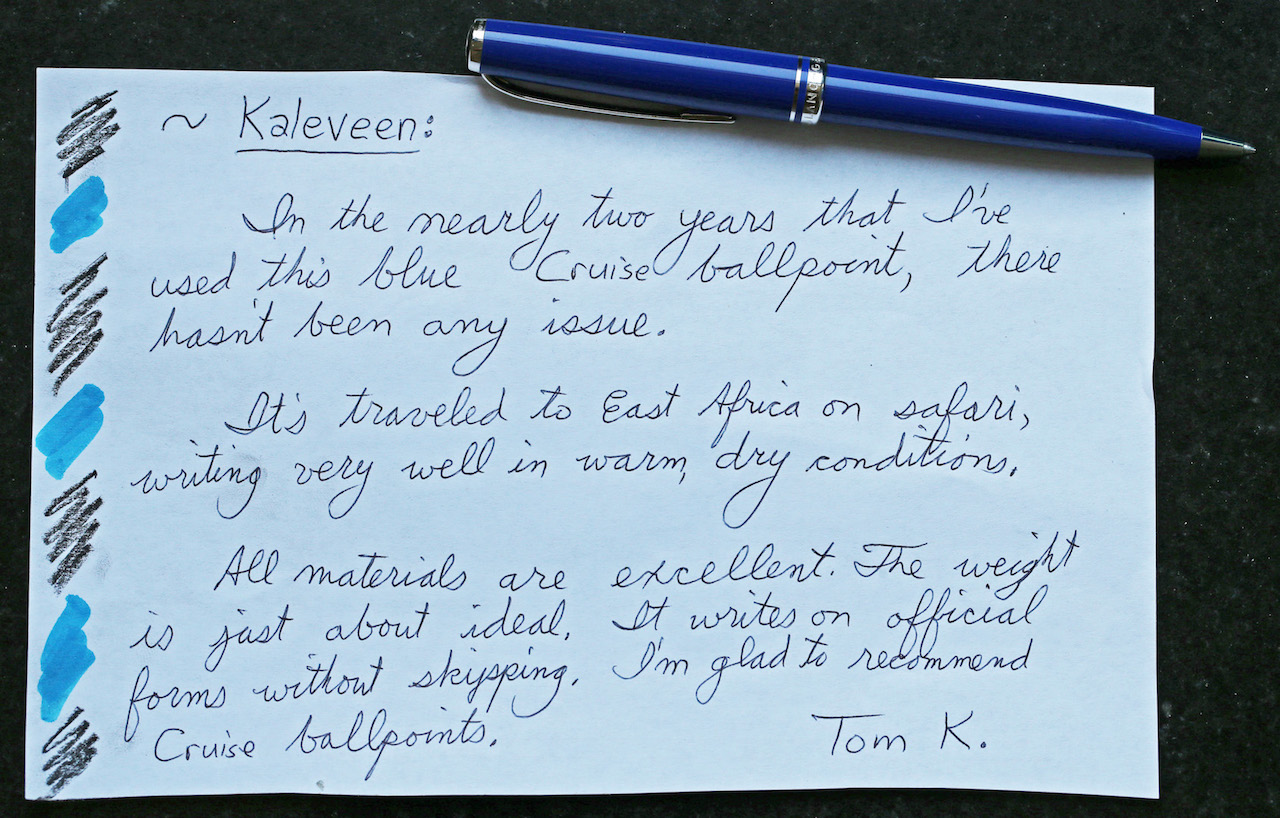 ~ Kaleveen:
In the nearly two years that I've
used this blue Cruise ballpoint, there
hasn't been any issue.
It's traveled to East Africa on safari,
writing very well in warm, dry conditions.
All materials are excellent. The weight
is just about ideal. It writes on official
forms without skipping. I'm glad to recommend
Cruise ballpoints.
Tom K.